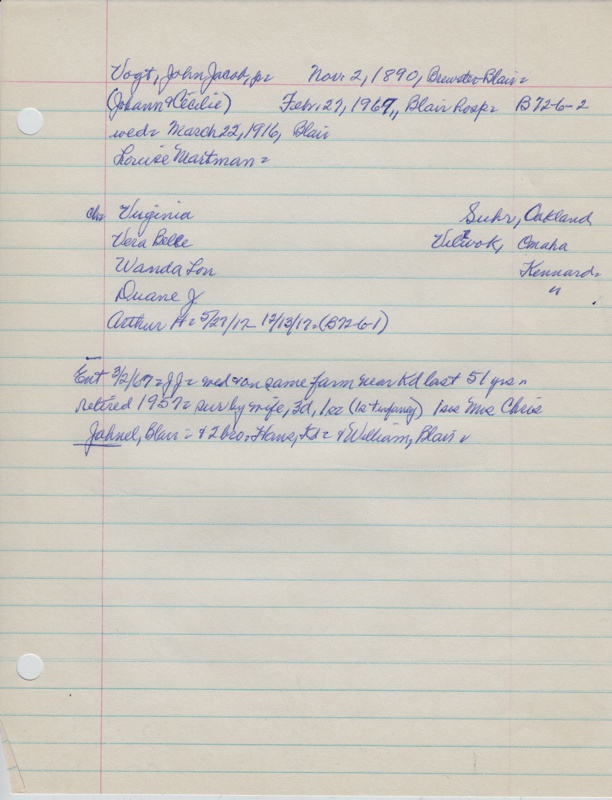 Vogt, John Jacob, jr= Nov. 2, 1890, Brewster-Blair=
(Johann & Cecilie) Feb. 27, 1967, Blair Hosp= B72-6-2
wed= March 22, 1916, Blair
Louise Martman=
ch= Virginia Suhr, Oakland
Vera Belle Vilwok, Omaha
Wanda Lou Kennard=
Duane J "
Arthur H= 5/27/17- 12/13/17=(B72-6-1)
Ent 3/2/67= JJ= wed & on same farm near Kd last 51 yrs=
retired 1957= sur by wife, 3d, 1s= (1s+infancy) 1 sis Mrs Chris
Jahnel, Blair= & 2 bro= Hans, Kd= & William, Blair=